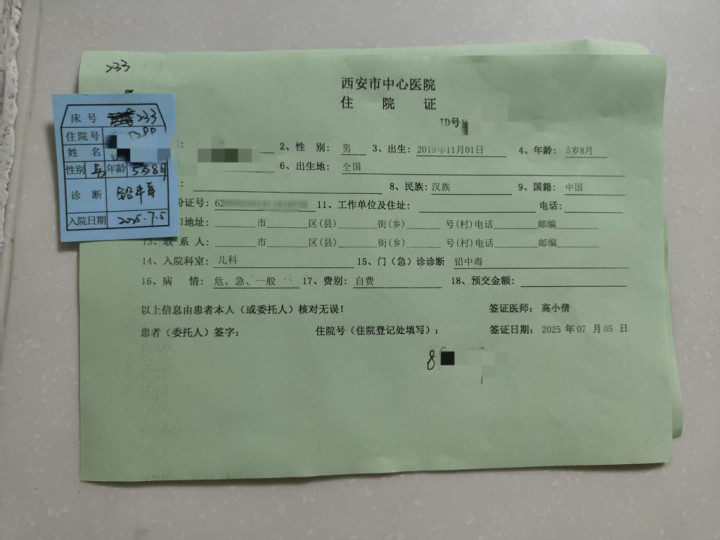 233
西安市中心医院
住 院 证
ID号
2、性 别: 男 3、出生: 2019年11月01日 4、年龄: 5岁8月
6、出生地: 全国
8、民族: 汉族 9、国籍: 中国
份证号: 62 11、工作单位及住址: 电话:
地址: 市 区(县) 街(乡) 号(村)电话 邮编
13、联 系 人: 市 区(县) 街(乡) 号(村)电话 邮编
14、入院科室: 儿科 15、门(急)诊诊断 铅中毒
16、病 情: 危、急、一般 17、费别: 自费 18、预交金额:
以上信息由患者本人(或委托人)核对无误! 签证医师: 高小倩
患者(委托人)签字: 住院号(住院登记处填写): 签证日期: 2025 年 07 月 05 日
8
床 号 233
住院号
姓 名
性别 男 年龄 5岁8月
诊 断 铅中毒
入院日期 2025.7.5